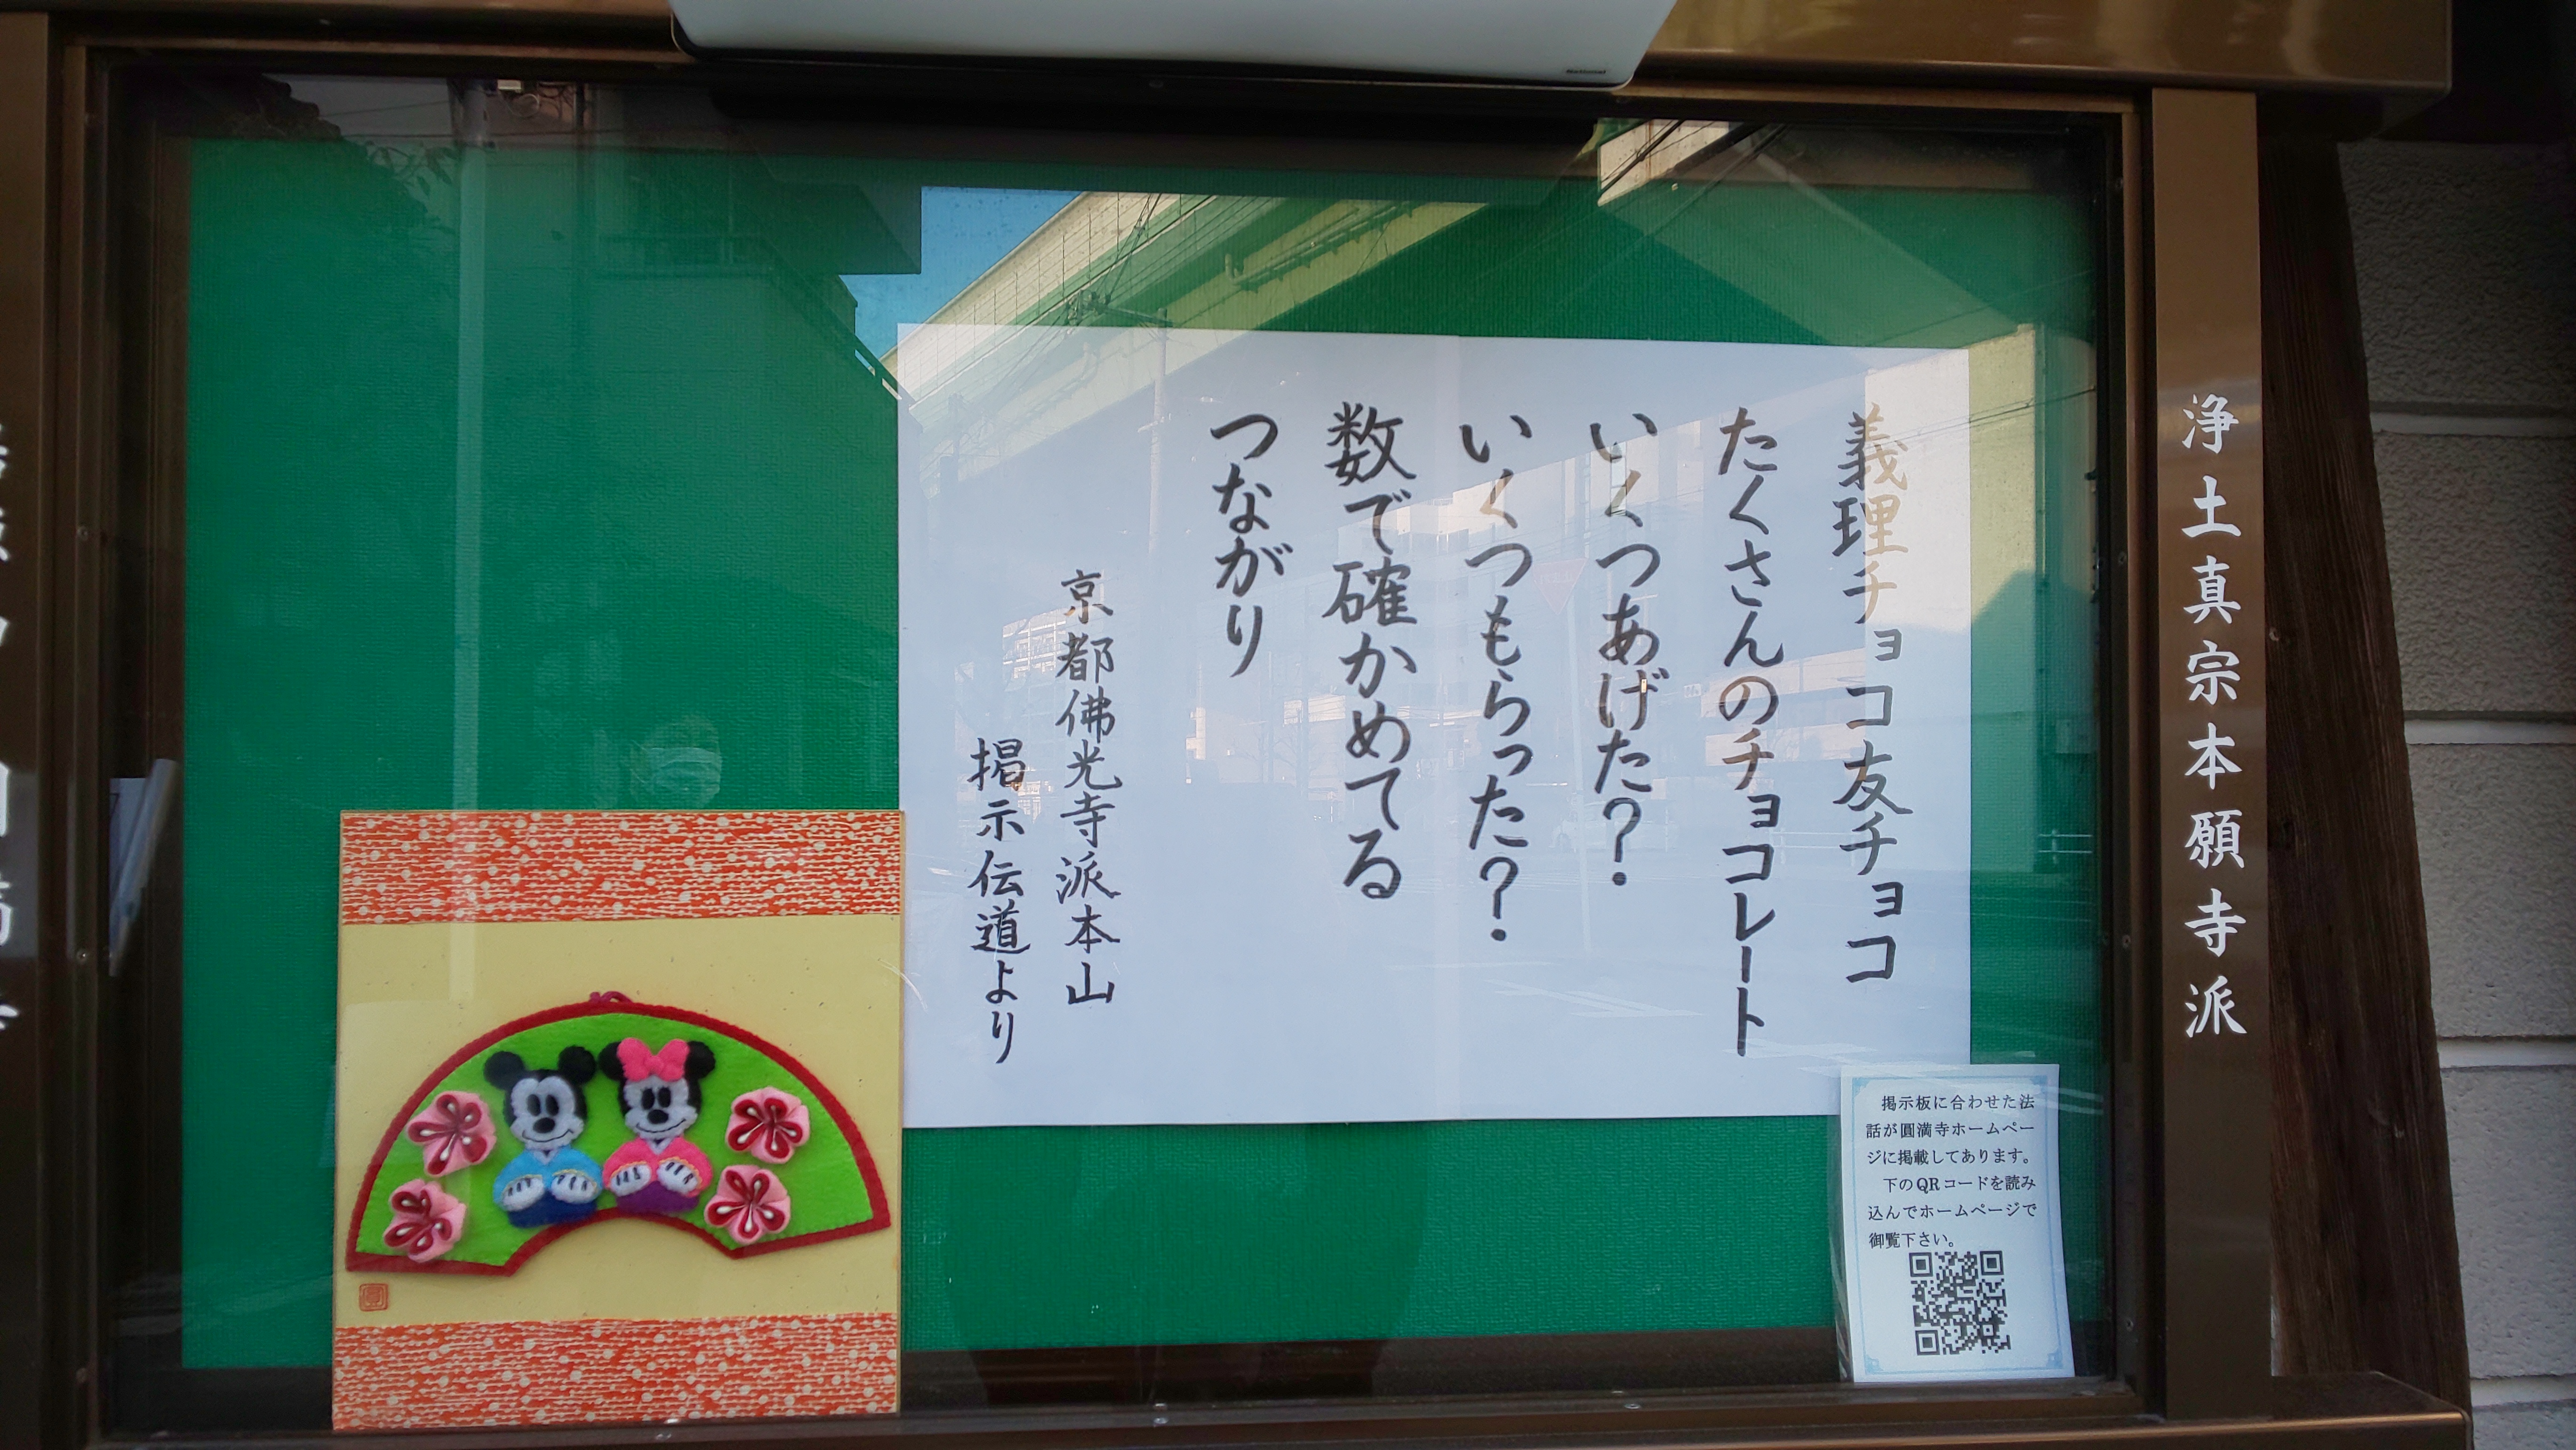 National
浄土真宗本願寺派
義理チョコ友チョコ
たくさんのチョコレート
いくつあげた?
いくつもらった?
数で確かめてる
つながり
京都佛光寺派本山
掲示伝道より
掲示板に合わせた法
話が圓満寺ホームペー
ジに掲載してあります。
下のQRコードを読み
込んでホームページで
御覧下さい。